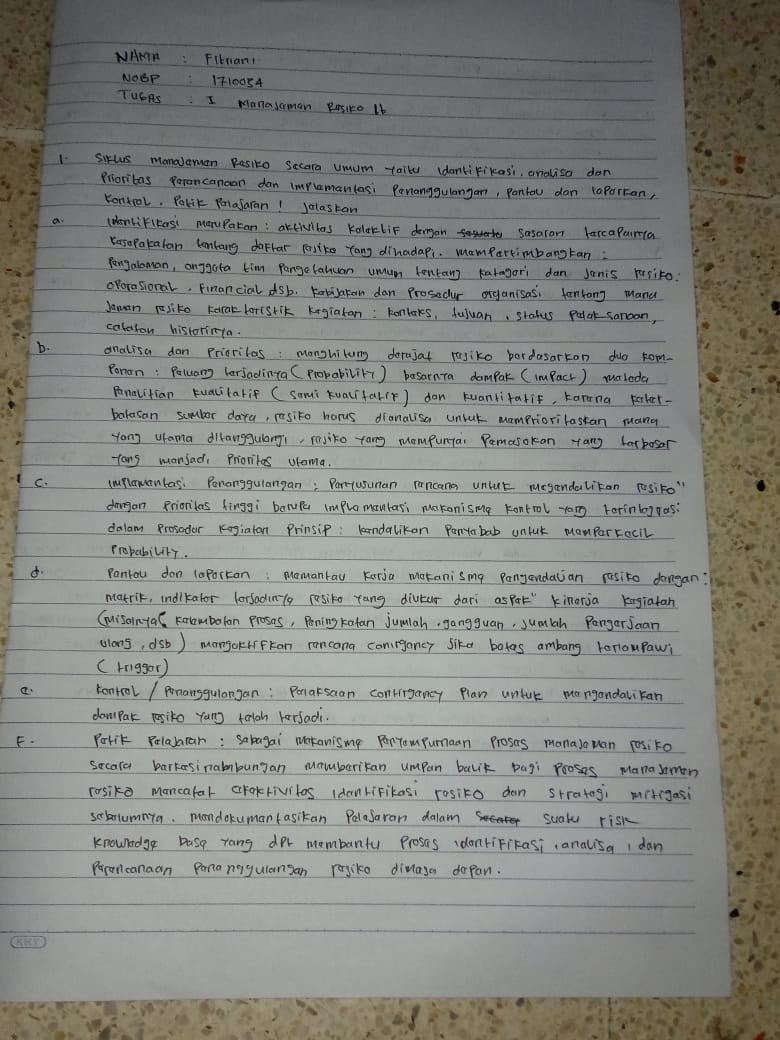 NAMA : Fitriani
NOBP : 1710054
TUGAS : I Manajaman Resiko Ib
1. Siklus manajaman Resiko secara umum yaitu Idantifikasi, analisa dan
Prioritas Perancanaan dan implamantasi Penanggulangan, Pantau dan laporkan,
kontrol, Patik Palajaran! Jalaskan
a. Idantifikasi marupakan : aktivitas kolaktif dengan sasaran tarcapainya
kasapakatan tantang daftar rasiko yang dihadapi. mampartimbangkan :
Pangalaman, anggota tim Pangatahuan umum tantang katagori dan janis rasiko:
oparasional, financial dsb. kabijakan dan Prosadur organisasi tantang mana
jaman rasiko karaktaristik kagiatan : kontaks, tujuan, status Palaksanaan,
catatan historinya.
b. analisa dan Prioritas : manghitung darajat rasiko bardasarkan dua kom-
Ponan : Paluang tarjadinya (Probability) basarnya dampak (impact) matoda
Panalitian kualitatif (sami kualitatif) dan kuantitatif, karana katar-
batasan sumbar daya, rasiko harus dianalisa untuk mamprioritaskan mana
yang utama ditanggulangi, rasiko yang mampunyai Pamasokan yang tarbasar
yang manjadi Prioritas utama.
c. implamantasi Pananggulangan : Panyusunan rancana untuk megandalikan rasiko"
dangan Prioritas tinggi barupa implamantasi makanisma kontrol yang tarintagrasi
dalam Prosadur kagiatan Prinsip : kandalikan Panyabab untuk mamparkacil
Probability.
d. Pantau dan laporkan : mamantau karja makanisma Pangandalian rasiko dangan:
matrik, indikator tarjadinya rasiko yang diukur dari aspak" kinarja kagiatan
(misalnya (kalambatan Prosas, Paningkatan jumlah gangguan, jumlah Pangarjaan
ulang, dsb) mangaktifkan rancana contirgancy jika batas ambang tarlampawi
(trigger)
e. kontrol / Pananggulangan : Palaksaan contirgancy Plan untuk mangandalikan
dampak rasiko yang talah tarjadi.
F. Patik Palajaran : sabagai makanisma Panyampurnaan Prosas manajaman rasiko
sacara barkasinabnbungan mambarikan umpan balik bagi Prosas manajaman
rasiko mancatat afaktivitas idantifikasi rasiko dan stratagi mitigasi
sabalumnya. mandokumantasikan Palajaran dalam suatu risk
knowladga basa yang dpt mambantu Prosas idantifikasi, analisa, dan
Parancanaan Pananggulangan rasiko dimasa dapan.
KKY